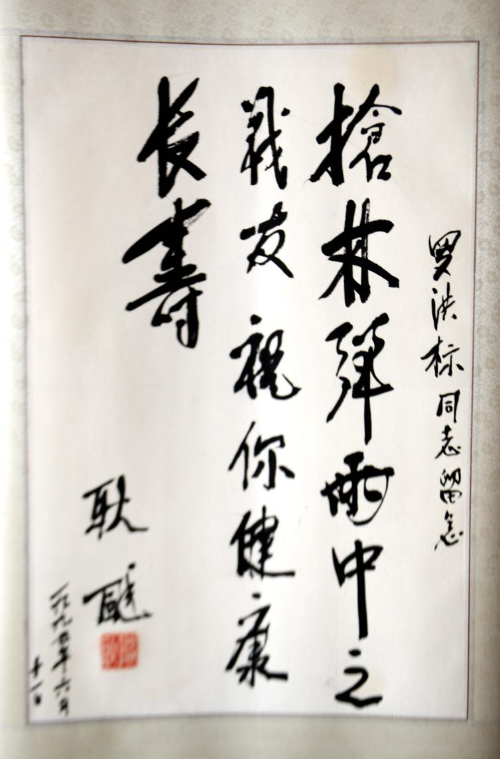 罗洪标同志留念
搶林弹雨中之
战友祝你健康
长寿
耿飚
一九九五年六月
十一日